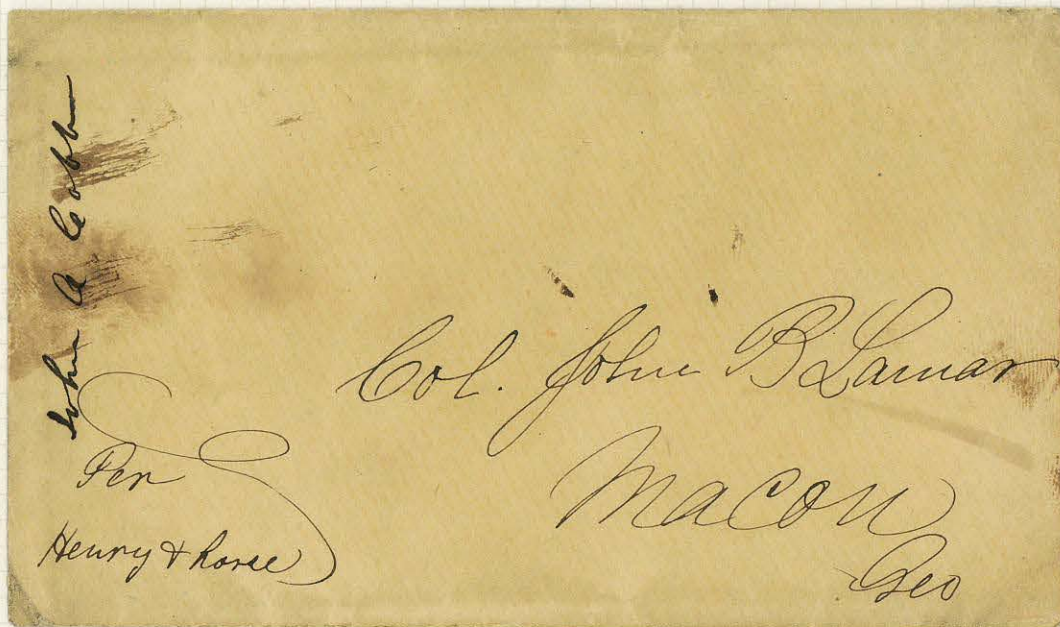 John A Cobb
Col. John B Lamar
Macon
Geo
Per
Henry & horse